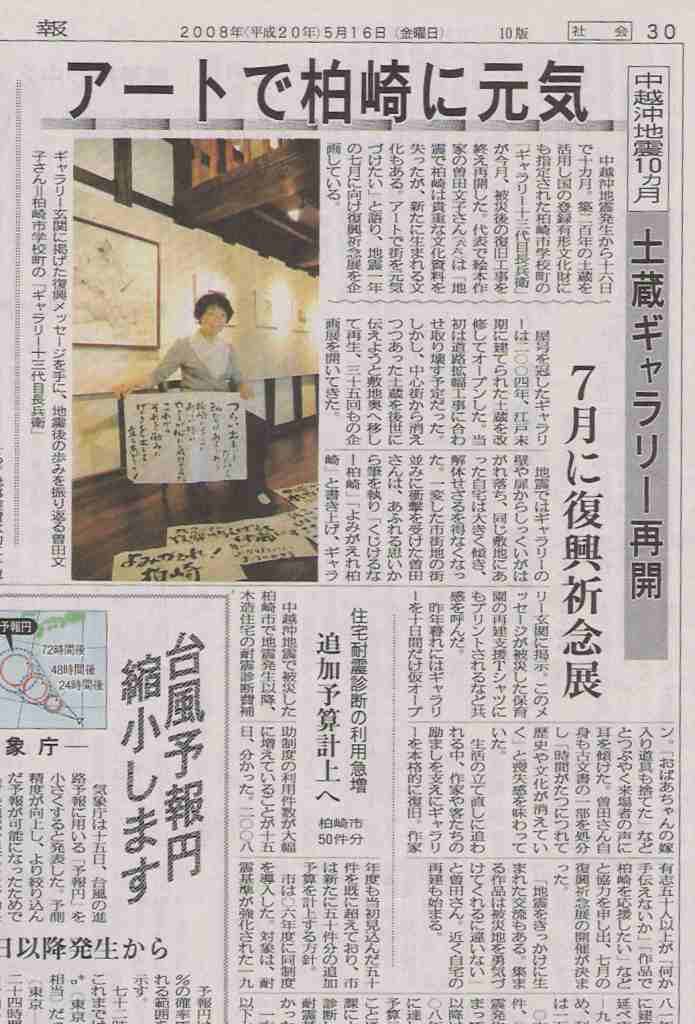 報
2008年(平成20年)5月16日(金曜日)
10版
社会
30
アートで柏崎に元気
中越沖地震10カ月
土蔵ギャラリー再開
7月に復興祈念展
中越沖地震発生から十六日
で十カ月。築二百年の土蔵を
活用し国の登録有形文化財に
も指定された柏崎市学校町の
「ギャラリー十三代目長兵衛」
が今月、被災後の復旧工事を
終え再開した。代表で絵本作
家の曽田文子さん(六八)は「地
震で柏崎は貴重な文化資料を
失ったが、新たに生まれる文
化もある。アートで街を元気
づけたい」と語り、地震一年
の七月に向け復興祈念展を企
画している。
屋号を冠したギャラリ
ーは二〇〇四年、江戸末
期に建てられた土蔵を改
修してオープンした。当
初は道路拡幅工事に合わ
せ取り壊す予定だった。
しかし、中心街から消え
つつあった土蔵を後世に
伝えようと敷地奥へ移し
て再生、三十五回もの企
画展を開いてきた。
地震ではギャラリーの
壁や扉からしっくいがは
がれ落ち、同じ敷地にあ
った自宅は大きく傾き、
解体せざるを得なくなっ
た。一変した市街地の街
並みに衝撃を受けた曽田
さんは、あふれる思いか
ら筆を執り「くじけるな
ー柏崎」「よみがえれ柏
崎」と書き上げ、ギャラ
リー玄関に掲示。このメ
ッセージが被災した保育
園の再建支援Tシャツに
もプリントされるなど共
感を呼んだ。
昨年暮れにはギャラリ
ーを十日間だけ仮オープ
ン。「おばあちゃんの嫁
入り道具も捨てた」など
とつぶやく来場者の声に
耳を傾けた。曽田さん自
身も古文書の一部を処分
し「時間がたつにつれて
歴史や文化が消えてい
く」と喪失感を味わって
いた。
生活の立て直しに追わ
れる中、作家や客たちの
励ましを支えにギャラリ
ーを本格的に復旧。作家
有志五十人以上が「何か
手伝えないか」「作品で
柏崎を応援したい」など
と協力を申し出、七月の
復興祈念展の開催が決ま
った。
「地震をきっかけに生
まれた交流もある。集ま
る作品は被災地を勇気づ
けてくれるに違いない」
と曽田さん。近く自宅の
再建も始まる。
ギャラリー玄関に掲げた復興メッセージを手に、地震後の歩みを振り返る曽田文
子さん=柏崎市学校町の「ギャラリー十三代目長兵衛」
よみがえれ!
柏崎
住宅耐震診断の利用急増
追加予算計上へ
柏崎市
50件分
中越沖地震で被災した
柏崎市で地震発生以降、
木造住宅の耐震診断費補
助制度の利用件数が大幅
に増えていることが十五
日、分かった。二〇〇八
年度も当初見込んだ五十
件を既に超えており、市
は新たに五十件分の追加
予算を計上する方針。
市は〇六年度に同制度
を導入した。対象は、耐
震基準が強化された一九
台風予報円
縮小します
予報円
72時間後
48時間後
24時間後
象庁―
気象庁は十五日、台風の進
路予報に用いる「予報円」を
小さくすると発表した。予測
精度が向上し、より絞り込ん
だ予報が可能になったためで
日以降発生から